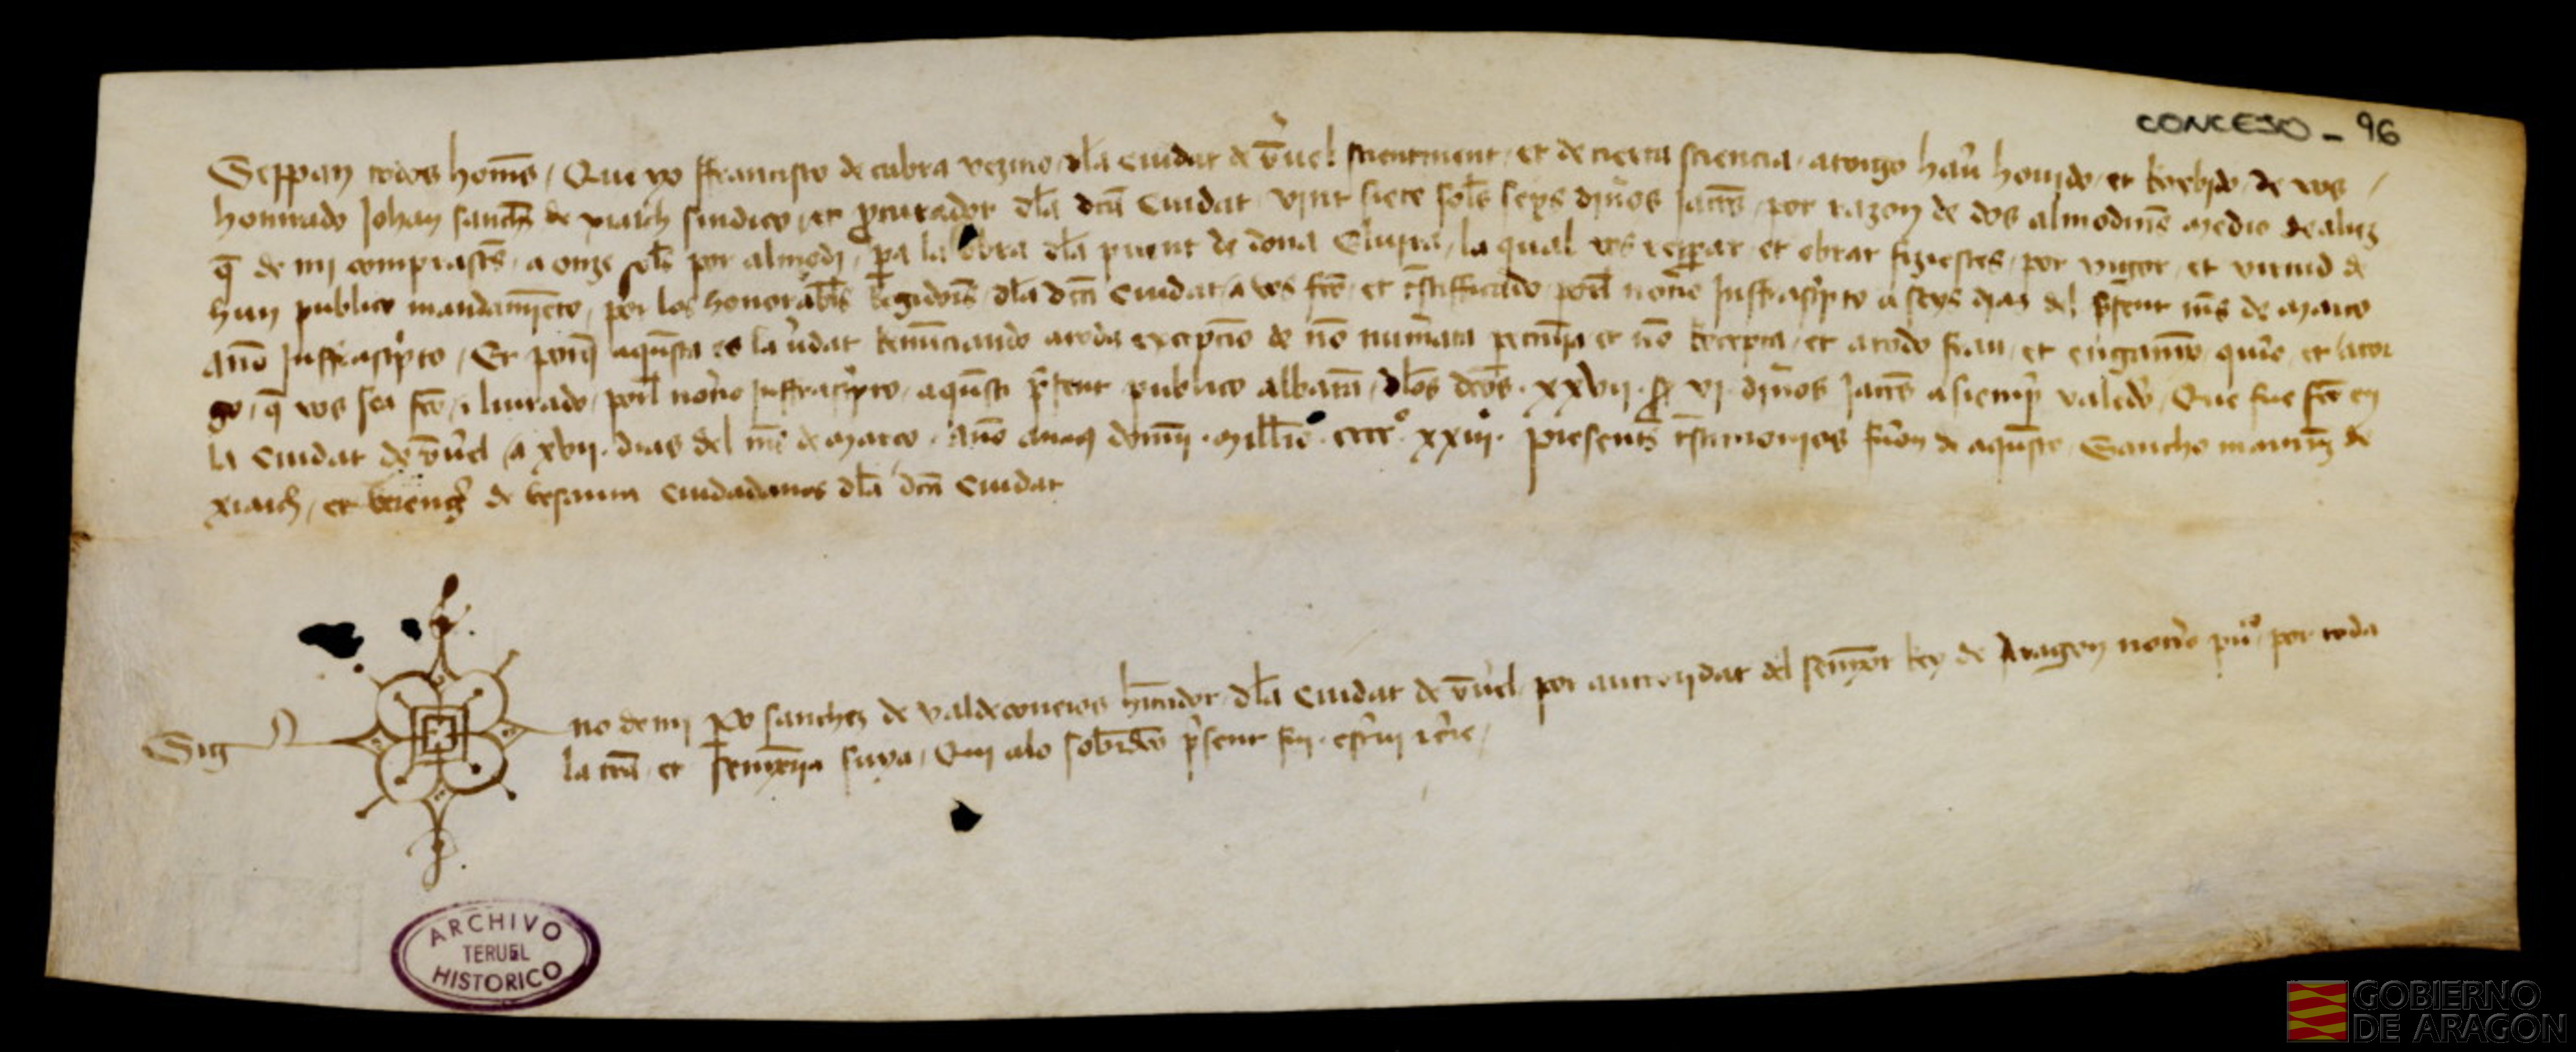 CONCEJO - 96
Seppan todos homēs / Que yo ffrancisco de cubra vezino dla Ciudat de Teruel scientment et de cierta sciencia atorgo hauer houido et Recebido de vos /
honrrado Johan sanchz de xiarch sindico et procurador dla dta Ciudat vint siete sols seys dineros Jaccs por razon de dos almodines medio de aluez
q̄ de mi comprastes a onze sols por almodi pora la obra dla puent de dona Eluira la qual vos reparar et obrar fiziestes por vigor et virtud de
hun publico mandamiento por los honorables Regidores dla dta Ciudat a vos fto et testifficado porel notario Inffrascripto a seys dias del present mes de março
anno Inffrascripto / Et porq̄ aquesta es la verdat Renunciando a toda excepcion de no numerada pecunia et no Recepta et a todo frau et enganno quiero et ator
go q̄ vos sea fto i liurado porel notario Inffrascripto aquesti present publico albaran dlos dtos xxvii ss vi dineros Jaccs a siempre valedero Que fue fto en
la Ciudat de Teruel a xvii dias del mes de março anno a natiuitate domini millesimo cccc° xxiii° presentes testimonios fueron de aquesto Sancho martinz de
xiarch et berenguer de besaum Ciudadanos dla dta Ciudat
Sig
no de mi Po sanchez de valdeconeios hitador dla Ciudat de Teruel por auctoridat del senyor Rey de Aragon notario puco por toda
la tierra et senyoria suya Qui a lo sobredito present fuy escriui i cerre
ARCHIVO
TERUEL
HISTORICO
GOBIERNO
DE ARAGON